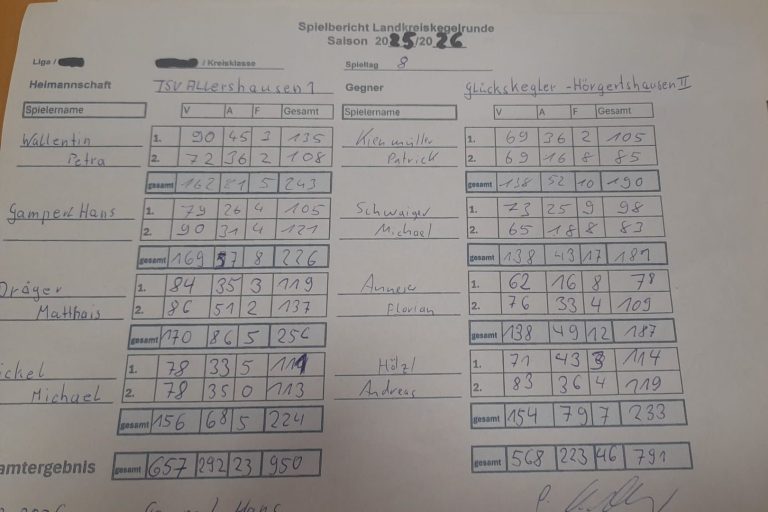 Spielbericht Landkreiskegelrunde
Saison 2025/2026
Liga / / Kreisklasse Spieltag 8
Heimannschaft TSV Allershausen 1 Gegner Glückskegler - Hörgertshausen II
Spielername V A F Gesamt Spielername V A F Gesamt
Wallentin 1. 90 45 3 135 Kienmüller 1. 69 36 2 105
Petra 2. 72 36 2 108 Patrick 2. 69 16 8 85
gesamt 162 81 5 243 gesamt 138 52 10 190
Gamperl Hans 1. 79 26 4 105 Schwaiger 1. 73 25 9 98
2. 90 31 4 121 Michael 2. 65 18 8 83
gesamt 169 57 8 226 gesamt 138 43 17 181
Dräger 1. 84 35 3 119 Anneser 1. 62 16 8 78
Matthais 2. 86 51 2 137 Florian 2. 76 33 4 109
gesamt 170 86 5 256 gesamt 138 49 12 187
ickel 1. 78 33 5 111 Hölzl 1. 71 43 3 114
Michael 2. 78 35 0 113 Andreas 2. 83 36 4 119
gesamt 156 68 5 224 gesamt 154 79 7 233
amtergebnis gesamt 657 292 23 950 gesamt 568 223 46 791
Gamperl Hans